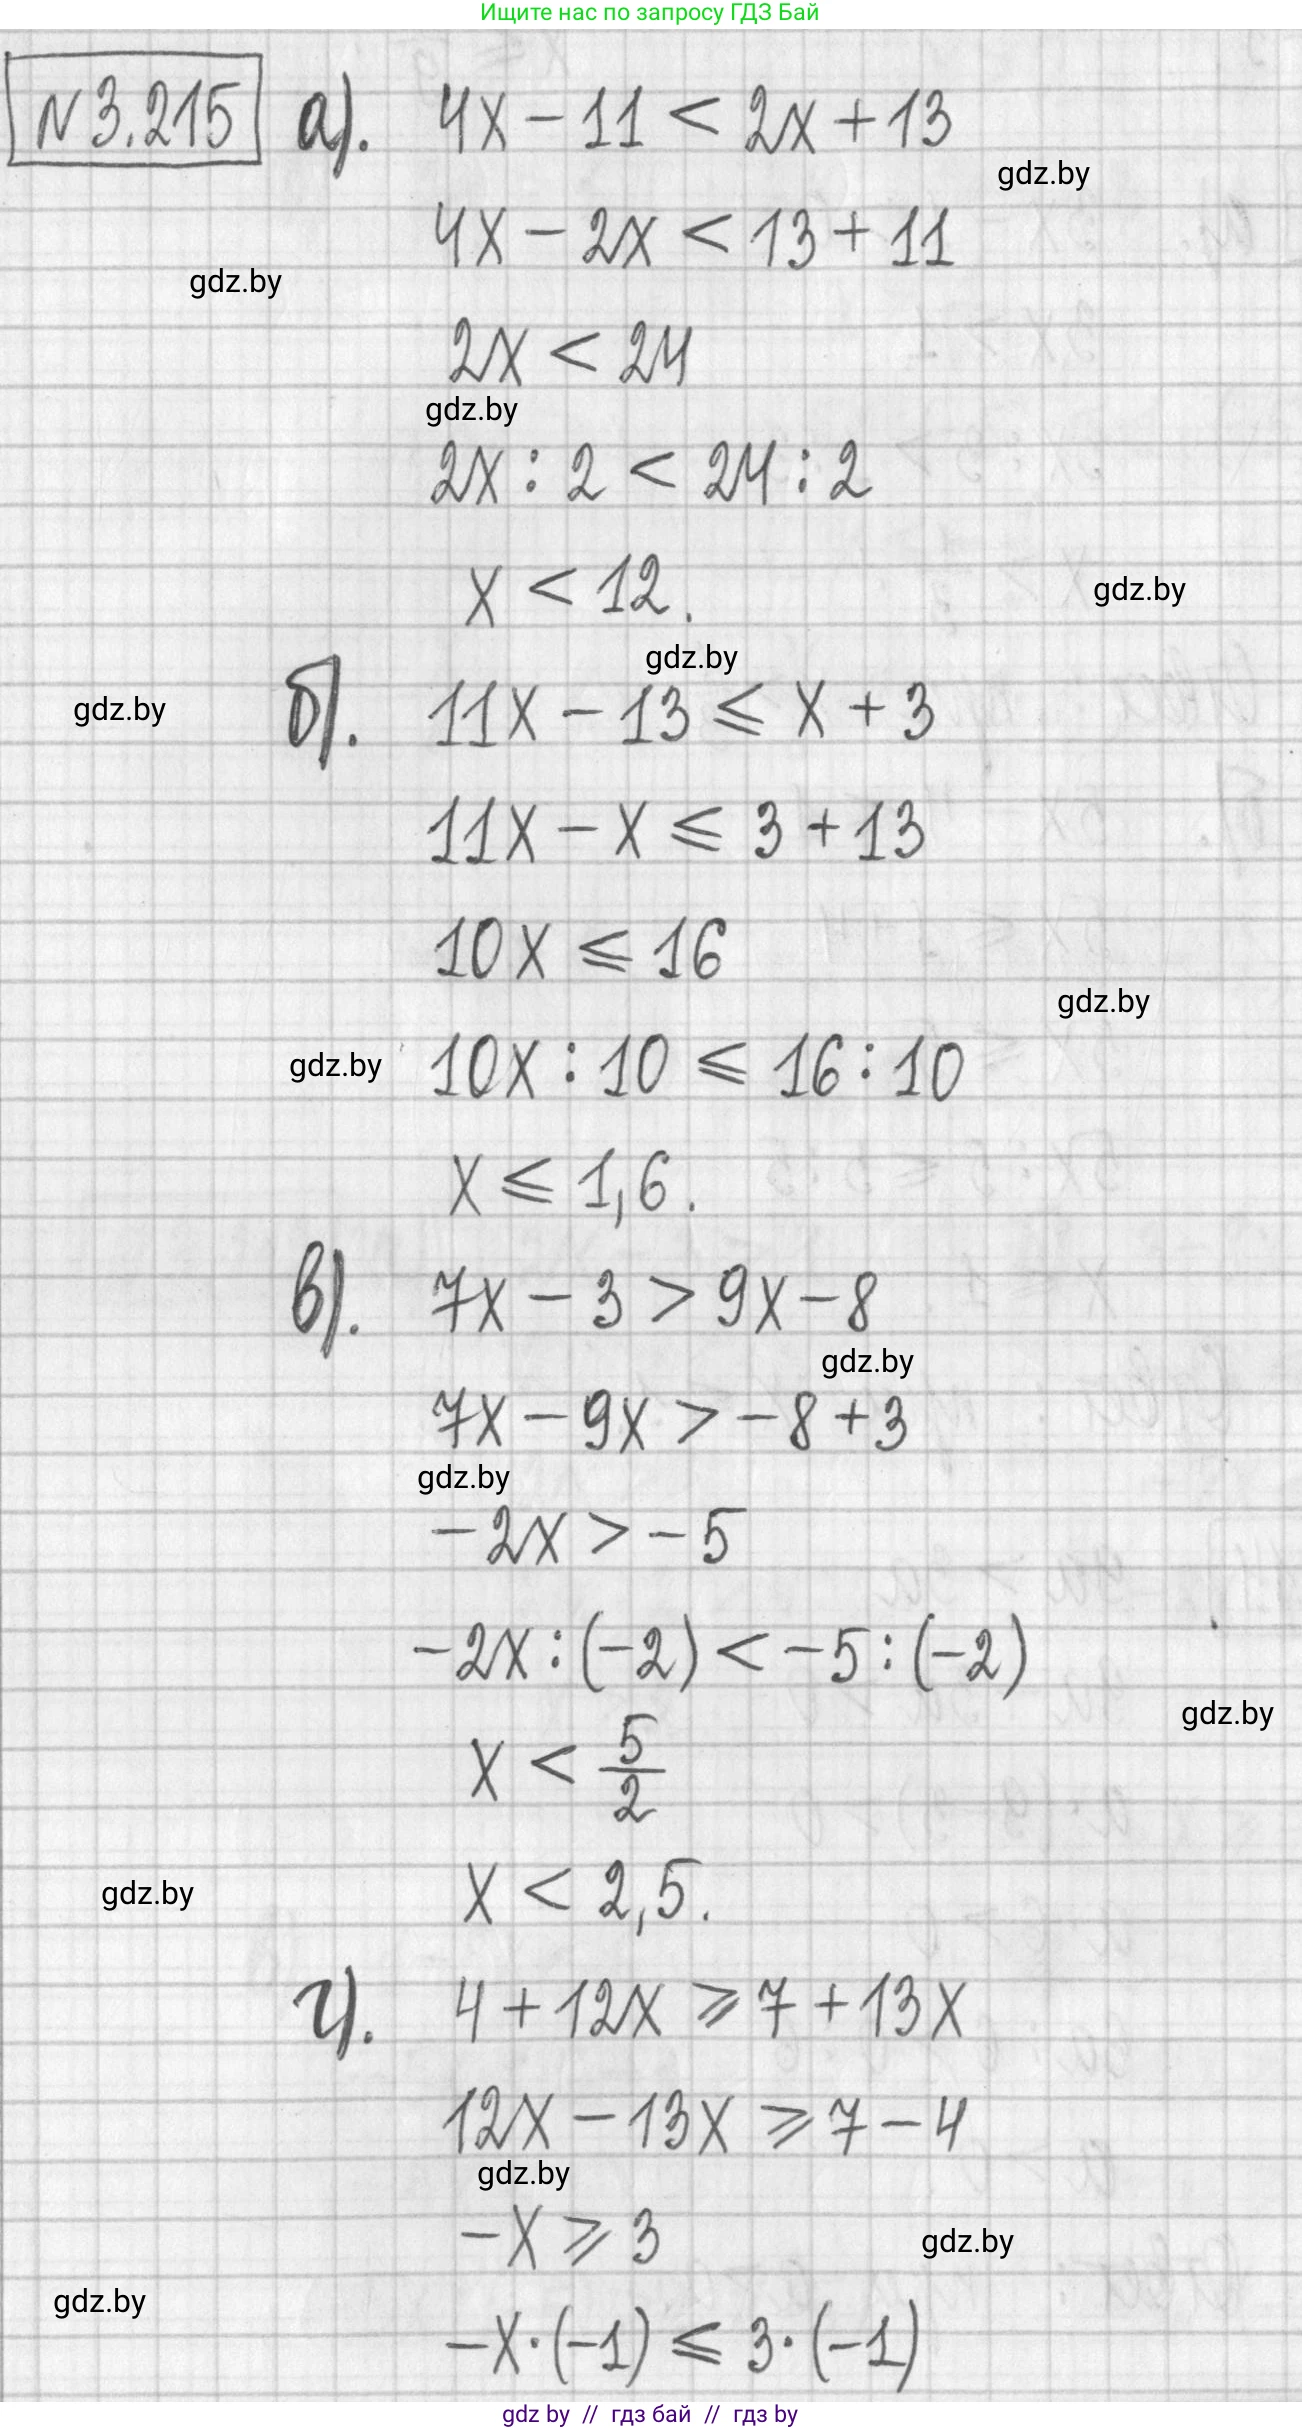 Ищите нас по запросу ГДЗ Бай
N 3.215 а). 4x - 11 < 2x + 13
gdz.by
4x - 2x < 13 + 11
gdz.by
2x < 24
gdz.by
2x : 2 < 24 : 2
x < 12.
gdz.by
gdz.by
gdz.by
б). 11x - 13 ⩽ x + 3
11x - x ⩽ 3 + 13
10x ⩽ 16
gdz.by
gdz.by
10x : 10 ⩽ 16 : 10
x ⩽ 1,6.
в). 7x - 3 > 9x - 8
gdz.by
7x - 9x > -8 + 3
gdz.by
-2x > -5
-2x : (-2) < -5 : (-2)
gdz.by
x < 5/2
x < 2,5.
gdz.by
г). 4 + 12x ⩾ 7 + 13x
12x - 13x ⩾ 7 - 4
gdz.by
-x ⩾ 3
gdz.by
gdz.by
-x · (-1) ⩽ 3 · (-1)
gdz by // гдз бай // гдз by